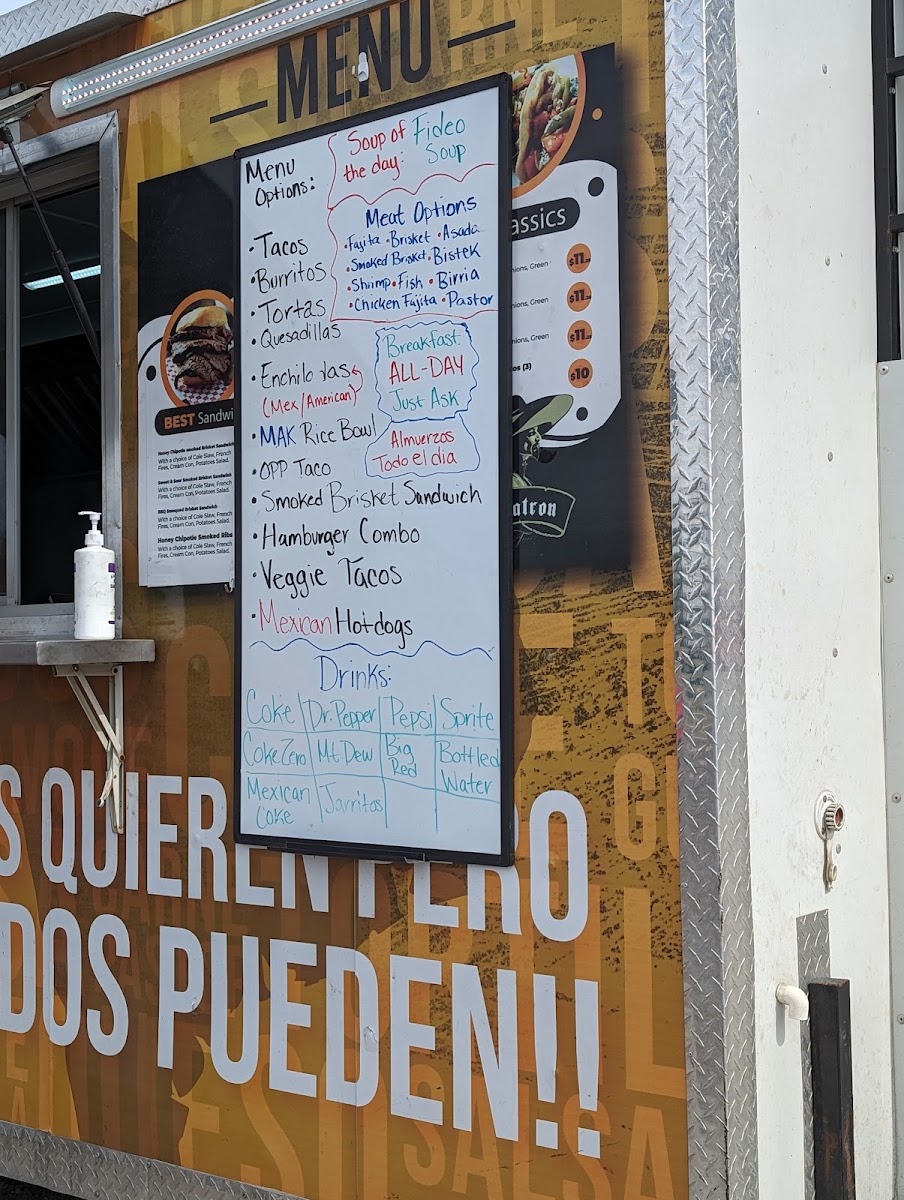 MENU
Menu
Options:
• Tacos
• Burritos
• Tortas
• Quesadillas
• Enchiladas
(Mex/American)
• MAK Rice Bowl
• OPP Taco
• Smoked Brisket Sandwich
• Hamburger Combo
• Veggie Tacos
• Mexican Hotdogs
Soup of
the day:
Fideo
Soup
Meat Options
• Fajita • Brisket • Asada
• Smoked Brisket • Bistek
• Shrimp • Fish • Birria
• Chicken Fajita • Pastor
Breakfast
ALL-DAY
Just Ask
Almuerzos
Todo el dia
Drinks:
Coke Dr. Pepper Pepsi Sprite
Coke Zero Mt. Dew Big Red Bottled Water
Mexican Coke Jarritos
BEST Sandwi
Honey Chipotle smoked Brisket Sandwich
With a choice of Cole Slaw, French
Fires, Cream Con, Potatoes Salad.
Sweet & Sour Smoked Brisket Sandwich
With a choice of Cole Slaw, French
Fires, Cream Con, Potatoes Salad.
BBQ Smoqued Brisket Sandwich
With a choice of Cole Slaw, French
Fires, Cream Con, Potatoes Salad.
Honey Chipotle Smoked Ribs
With a choice of Cole Slaw, French
Fires, Cream Con, Potatoes Salad.
assics
nions, Green $11
nions, Green $11
nions, Green $11
os (3) $10
atron
S QUIEREN PERO
DOS PUEDEN!!
SALSA